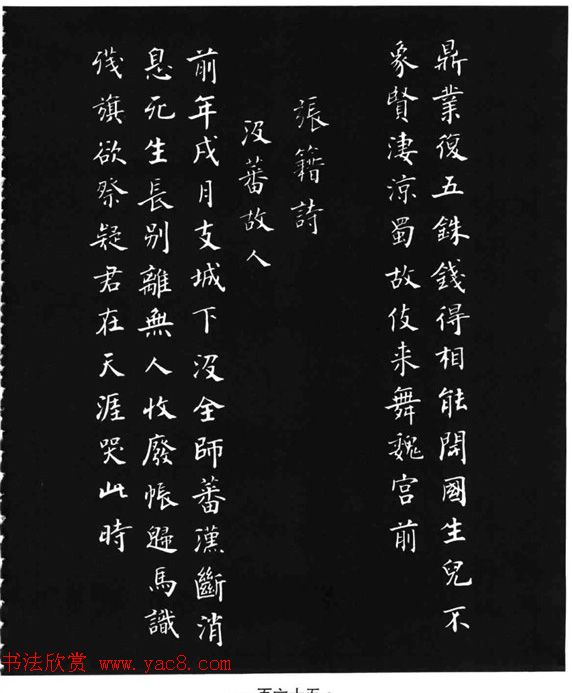 鼎業復五銖錢得相能開國生兒不
象賢淒涼蜀故伎来舞魏宮前
張籍詩
没蕃故人
前年戍月支城下没全師蕃漢斷消
息死生長别離無人收廢帳歸馬識
殘旗欲祭疑君在天涯哭此時
书法欣赏 www.yac8.com